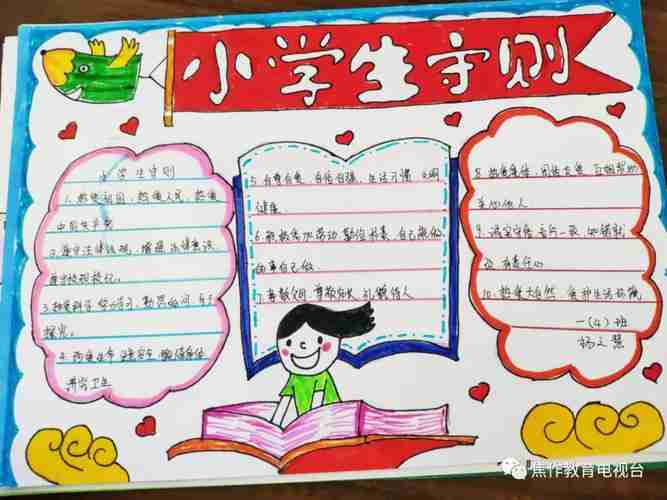 小学生守则
中小学生守则
1.热爱祖国，热爱人民，热爱
中国共产党
2.遵守法律法规，增强法律意识
遵守校规校纪。
3.热爱科学 努力学习，勤思好问 乐于
探究。
4.珍爱生命 注意安全 锻炼身体
讲究卫生
5.自尊自爱 自信自强 生活习惯 文明
健康
6.积极参加劳动 勤俭朴素 自己能做
的事自己做
7.孝敬父母 尊敬师长 礼貌待人
8.热爱集体 团结友爱 互相帮助
关心他人
9.诚实守信 言行一致 知错就
改 有责任心
10.热爱大自然 爱护生活环境
一(4)班
焦作教育电视台